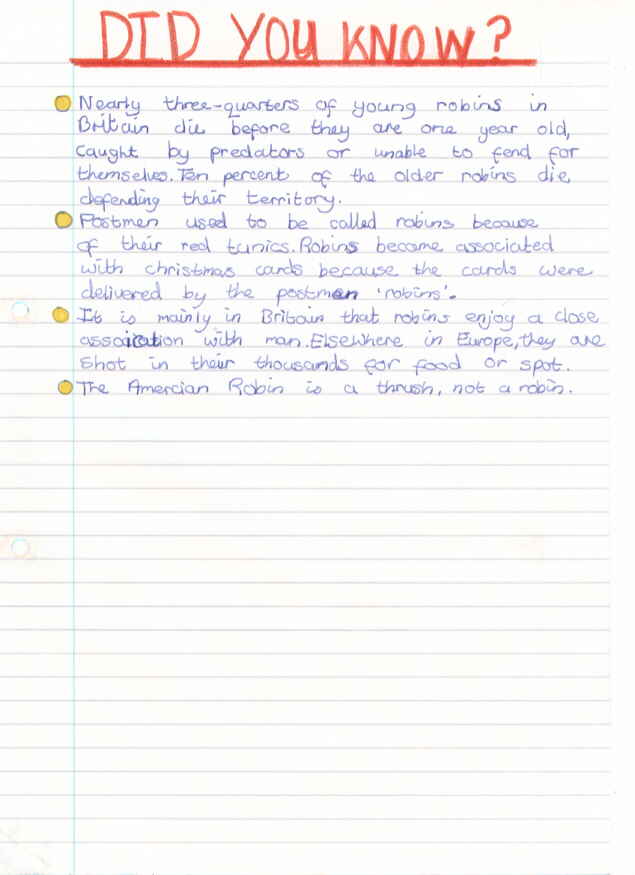 DID YOU KNOW?
Nearly three-quarters of young robins in
Britain die before they are one year old,
caught by predators or unable to fend for
themselves. Ten percent of the older robins die,
defending their territory.
Postmen used to be called robins because
of their red tunics. Robins became associated
with christmas cards because the cards were
delivered by the postmen 'robins'.
It is mainly in Britain that robins enjoy a close
association with man. Elsewhere in Europe, they are
shot in their thousands for food or spot.
The Amercian Robin is a thrush, not a robin.